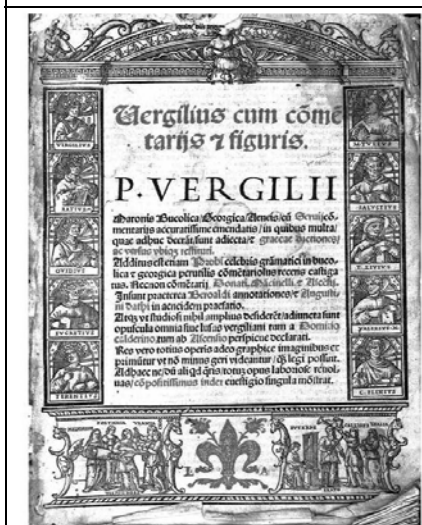 Vergilius cum cōmē
tarijs ⁊ figuris.
P. VERGILII
Maronis Bucolica/Georgica/Aeneis/cū Seruij cō-
mentarijs accuratissime emendatis/in quibus multa/
quae adhuc deerāt, sunt adiecta/⁊ graecae dictiones/
ac versus vbiqꝫ restituti.
Additus est etiam Probi celebris grāmatici in buco-
lica ⁊ georgica perutilis cōmētariolus recens castiga
tus. Necnon cōmētarij Donati, Mācinelli, ⁊ Ascēsij.
Insunt praeterea Beroaldi annotationes/⁊ Augusti-
ni Dathi in aeneidem praefatio.
Atqꝫ vt studiosi nihil amplius desiderēt/adiuncta sunt
opuscula omnia siue lusus vergiliani tum a Domicio
calderino, tum ab Ascensio perspicue declarati.
Res vero totius operis adeo graphice imaginibus ex
primūtur vt nō minus geri videantur/qꝫ legi possint.
Adhaec ne/dū aliqd qris/totū opus laboriose reuol-
uas/cōpositissimus index euestigio singula mōstrat.
VIRGILIVS
OVIDIVS
TERENTIVS
SALVSTIVS
T. LIVIVS
VALERIVS M.
L A